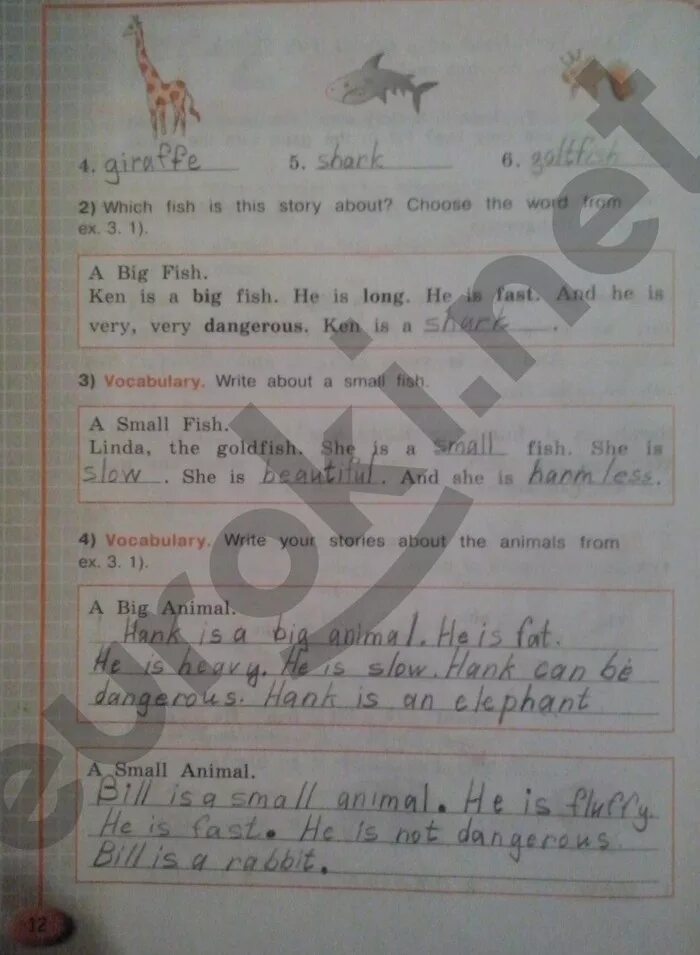 4. giraffe 5. shark 6. goltfish
2) Which fish is this story about? Choose the word from
ex. 3. 1).
A Big Fish.
Ken is a big fish. He is long. He is fast. And he is
very, very dangerous. Ken is a shark.
3) Vocabulary. Write about a small fish.
A Small Fish.
Linda, the goldfish. She is a small fish. She is
slow. She is beautiful. And she is harmless.
4) Vocabulary. Write your stories about the animals from
ex. 3. 1).
A Big Animal.
Hank is a big animal. He is fat.
He is heavy. He is slow. Hank can be
dangerous. Hank is an elephant
A Small Animal.
Bill is a small animal. He is fluffy.
He is fast. He is not dangerous
Bill is a rabbit.
12
euroki.net